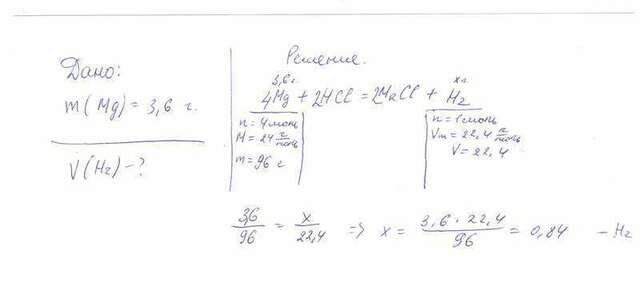 Дано:
m(Mg) = 3,6 г.
V(H2) - ?
Решение.
3,6 г. x л.
4Mg + 2HCl = 2MgCl + H2
n = 4 моль
M = 24 г/моль
m = 96 г
n = 1 моль
Vm = 22,4 л/моль
V = 22,4
3,6/96 = x/22,4 => x = 3,6 · 22,4/96 = 0,84 - H2